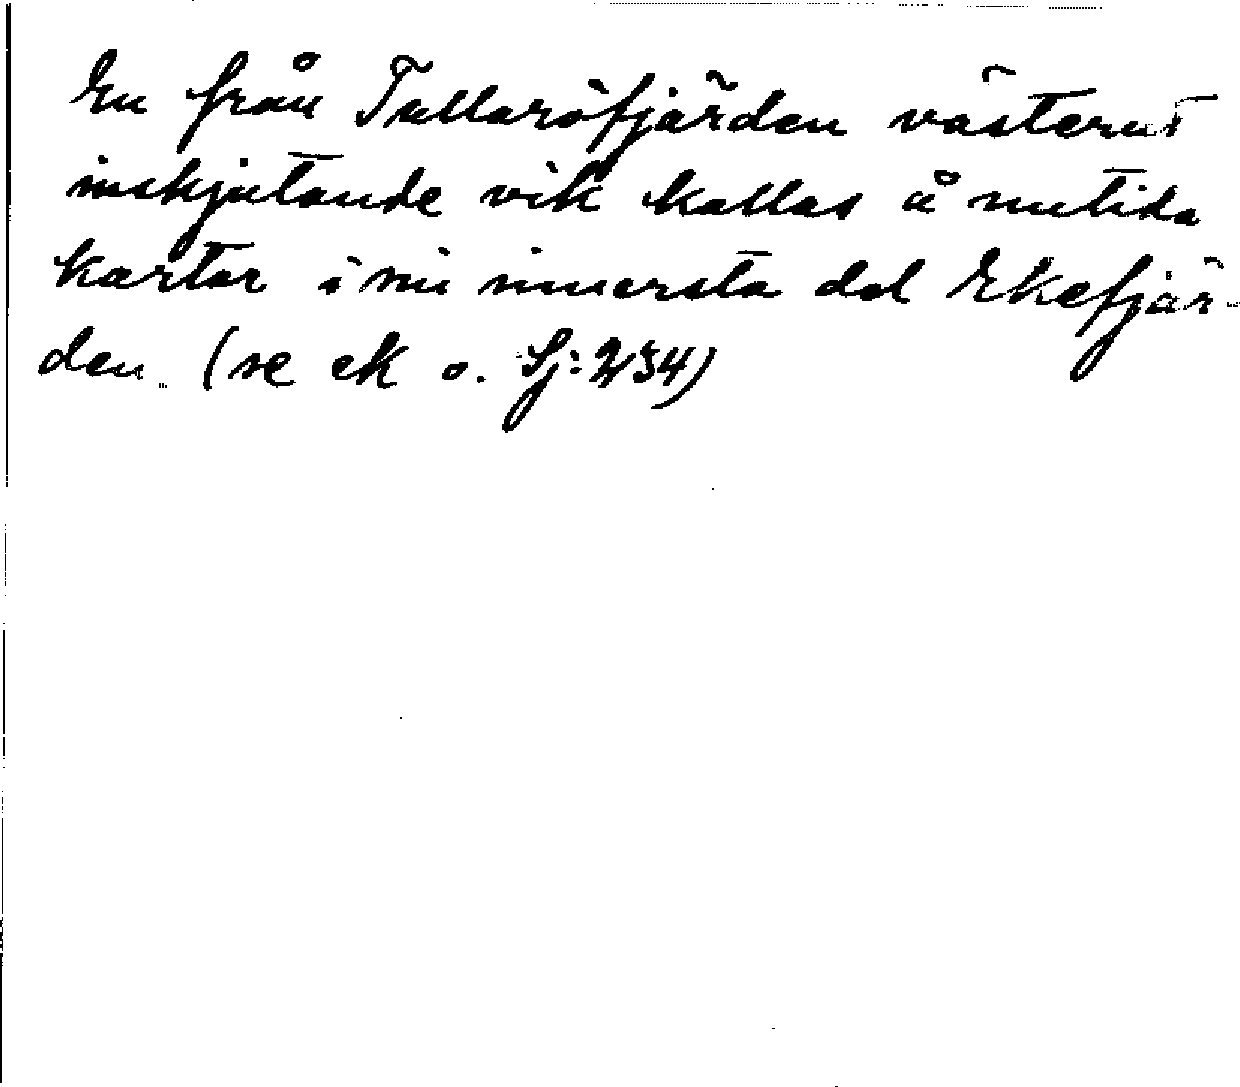 En från Tullaröfjärden västerut
inskjutande vik kallas å nutida
kartor i sin innersta del Ekefjär-
den. (se ek o. Sj: 234)